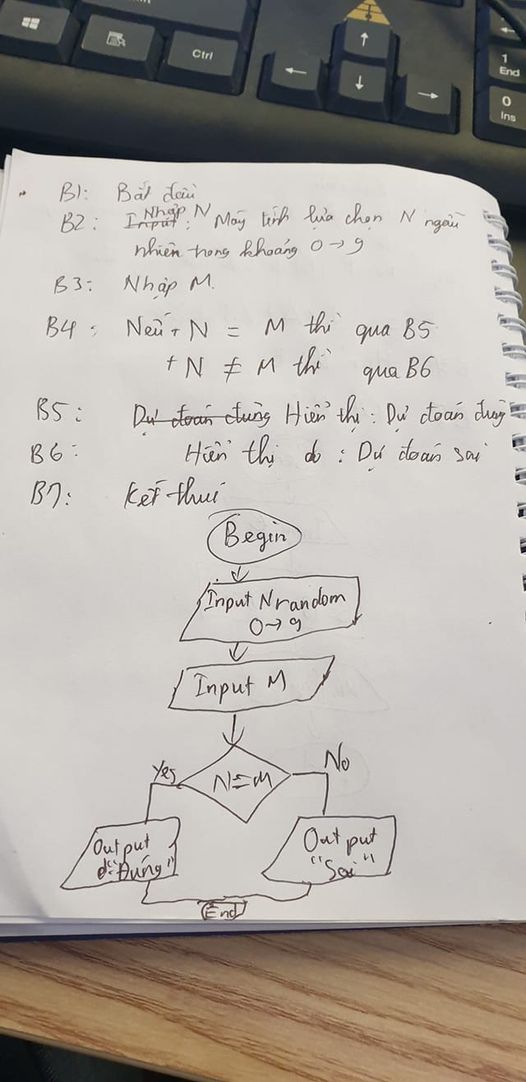 Ctrl
1
End
0
Ins
B1: Bắt đầu
B2: Input: Nhập N Máy tính lựa chọn N ngẫu
nhiên trong khoảng 0→9
B3: Nhập M.
B4: Nếu + N = M thì qua B5
+ N ≠ M thì qua B6
B5: Dự đoán đúng Hiển thị: Dự đoán đúng
B6: Hiển thị : Dự đoán sai
B7: Kết thúc
Begin
Input N random
0→9
Input M
N=M
Yes
No
Output
"Đúng"
Output
"Sai"
End